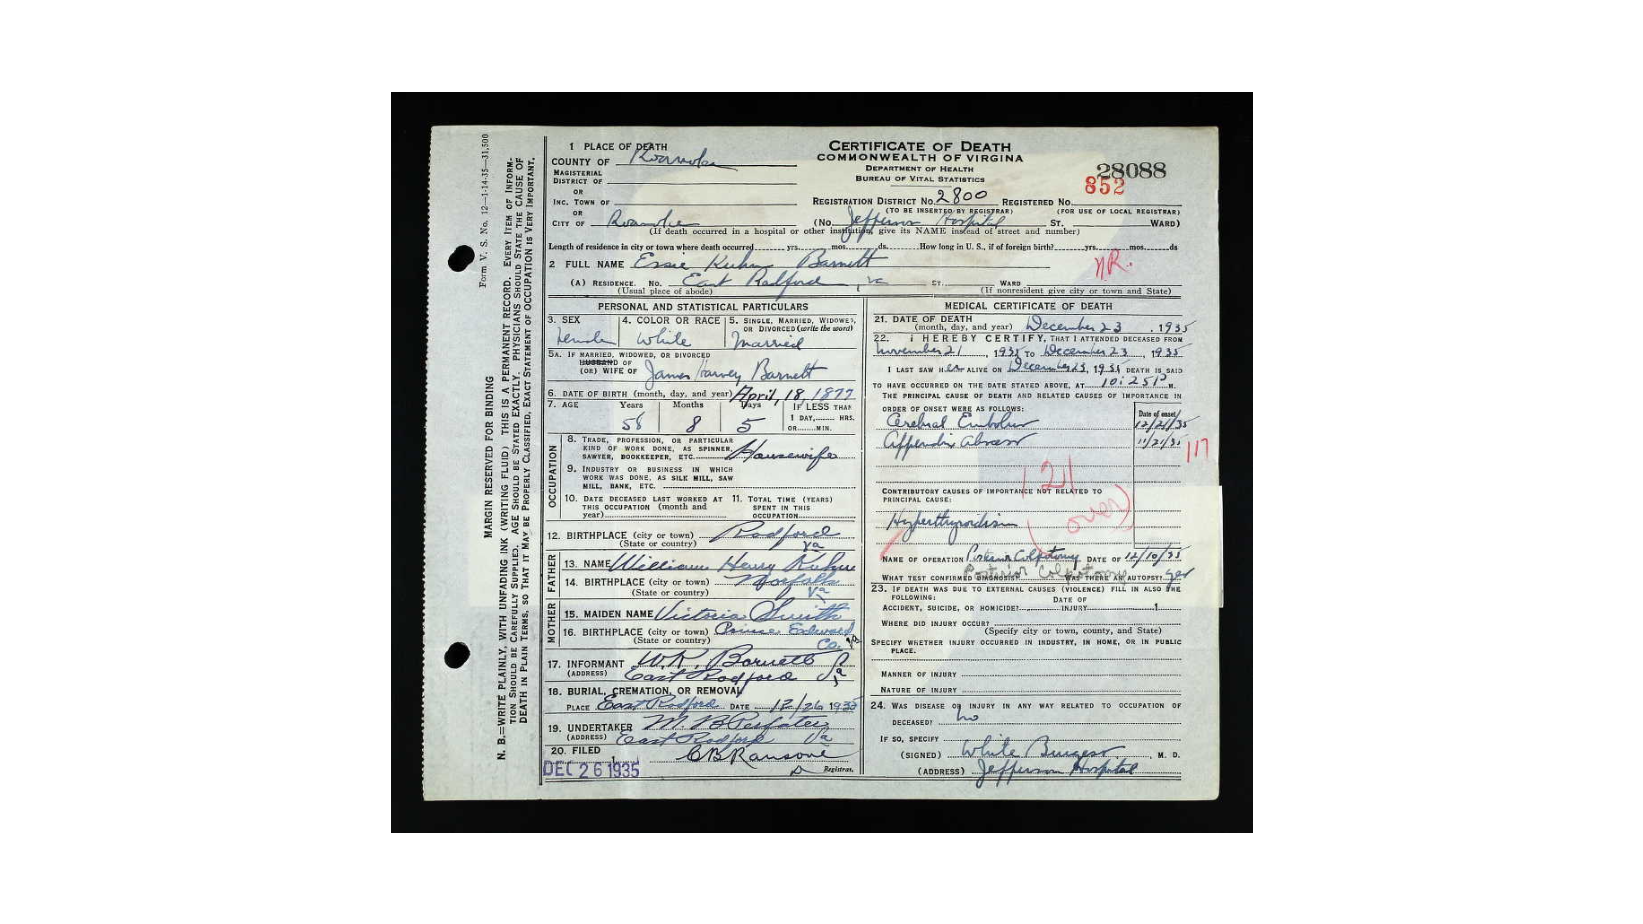 Form V. S. No. 12—1-14-35—31,500
MARGIN RESERVED FOR BINDING
N. B.—WRITE PLAINLY, WITH UNFADING INK (WRITING FLUID) THIS IS A PERMANENT RECORD. EVERY ITEM OF INFORM-
TION SHOULD BE CAREFULLY SUPPLIED. AGE SHOULD BE STATED EXACTLY. PHYSICIANS SHOULD STATE THE CAUSE OF
DEATH IN PLAIN TERMS, SO THAT IT MAY BE PROPERLY CLASSIFIED, EXACT STATEMENT OF OCCUPATION IS VERY IMPORTANT.
CERTIFICATE OF DEATH
COMMONWEALTH OF VIRGINIA
DEPARTMENT OF HEALTH
BUREAU OF VITAL STATISTICS
28088
852
1 PLACE OF DEATH
COUNTY OF Roanoke
MAGISTERIAL
DISTRICT OF
OR
INC. TOWN OF
OR
CITY OF Roanoke
REGISTRATION DISTRICT No. 2800 REGISTERED No.
(TO BE INSERTED BY REGISTRAR) (FOR USE OF LOCAL REGISTRAR)
(No. Jefferson Hospital ST. WARD)
(If death occurred in a hospital or other institution, give its NAME instead of street and number)
Length of residence in city or town where death occurred yrs. mos. ds. How long in U. S., if of foreign birth? yrs. mos. ds
2 FULL NAME Essie Kuhn Barnett
NR.
(A) RESIDENCE. No. East Radford, Va ST. WARD
(Usual place of abode) (If nonresident give city or town and State)
PERSONAL AND STATISTICAL PARTICULARS
3. SEX
Female
4. COLOR OR RACE
White
5. SINGLE, MARRIED, WIDOWED, OR DIVORCED (write the word)
Married
5A. IF MARRIED, WIDOWED, OR DIVORCED
HUSBAND OF
(OR) WIFE OF James Harvey Barnett
6. DATE OF BIRTH (month, day, and year) April, 18, 1877
7. AGE Years Months Days IF LESS THAN
1 DAY, HRS.
OR MIN.
58 8 5
OCCUPATION
8. TRADE, PROFESSION, OR PARTICULAR
KIND OF WORK DONE, AS SPINNER,
SAWYER, BOOKKEEPER, ETC. Housewife
9. INDUSTRY OR BUSINESS IN WHICH
WORK WAS DONE, AS SILK MILL, SAW
MILL, BANK, ETC.
10. DATE DECEASED LAST WORKED AT
THIS OCCUPATION (month and
year)
11. TOTAL TIME (YEARS)
SPENT IN THIS
OCCUPATION
12. BIRTHPLACE (city or town) Radford
(State or country) Va
FATHER
13. NAME William Henry Kuhn
14. BIRTHPLACE (city or town) Norfolk
(State or country) Va
MOTHER
15. MAIDEN NAME Victoria Smith
16. BIRTHPLACE (city or town) Prince Edward
(State or country) Co. Va
17. INFORMANT W.K. Barnett
(ADDRESS) East Radford Va
18. BURIAL, CREMATION, OR REMOVAL
PLACE East Radford DATE 12/26 1935
19. UNDERTAKER
(ADDRESS) East Radford Va
20. FILED
DEC 26 1935
C B Ransone
Registrar.
MEDICAL CERTIFICATE OF DEATH
21. DATE OF DEATH
(month, day, and year) December 23, 1935
22. I HEREBY CERTIFY, THAT I ATTENDED DECEASED FROM
November 21, 1935 TO December 23, 1935
I LAST SAW HER ALIVE ON December 23, 1935 DEATH IS SAID
TO HAVE OCCURRED ON THE DATE STATED ABOVE, AT 10:25 P M.
THE PRINCIPAL CAUSE OF DEATH AND RELATED CAUSES OF IMPORTANCE IN
ORDER OF ONSET WERE AS FOLLOWS:
Date of onset
Cerebral Embolus 12/21/35
Appendix abscess 11/21/35
117
121
CONTRIBUTORY CAUSES OF IMPORTANCE NOT RELATED TO
PRINCIPAL CAUSE:
(over)
Hyperthyroidism
NAME OF OPERATION Posterior Colpotomy DATE OF 12/10/35
Posterior Colpotomy
WHAT TEST CONFIRMED DIAGNOSIS? WAS THERE AN AUTOPSY? yes
23. IF DEATH WAS DUE TO EXTERNAL CAUSES (VIOLENCE) FILL IN ALSO THE
FOLLOWING:
ACCIDENT, SUICIDE, OR HOMICIDE? DATE OF INJURY 1
WHERE DID INJURY OCCUR?
(Specify city or town, county, and State)
SPECIFY WHETHER INJURY OCCURRED IN INDUSTRY, IN HOME, OR IN PUBLIC
PLACE.
MANNER OF INJURY
NATURE OF INJURY
24. WAS DISEASE OR INJURY IN ANY WAY RELATED TO OCCUPATION OF
DECEASED? no
IF SO, SPECIFY
(SIGNED) White Burgess M. D.
(ADDRESS) Jefferson Hospital